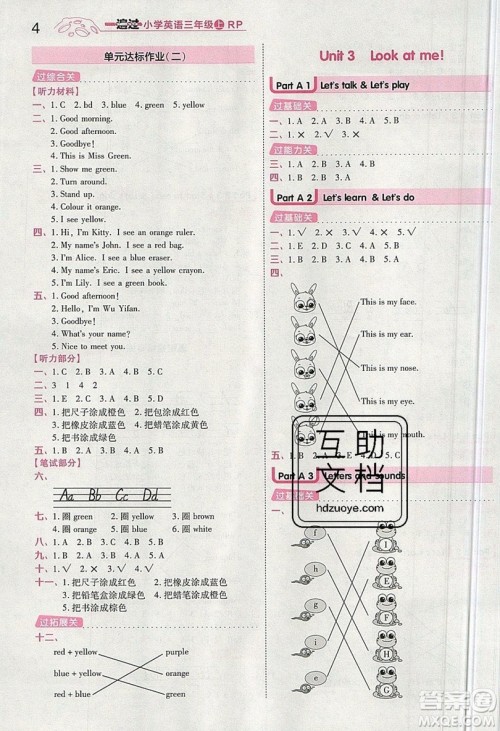 4 一遍过 小学英语三年级上 RP
单元达标作业（二）
过综合关
【听力材料】
一、1. C 2. bd 3. blue 4. green 5. yellow
二、1. Good morning.
2. Good afternoon.
3. Goodbye!
4. This is Miss Green.
三、1. Show me green.
2. Turn around.
3. Stand up.
4. Colour it orange.
5. I see yellow.
四、1. Hi, I'm Kitty. I see an orange ruler.
2. My name's John. I see a red bag.
3. I'm Alice. I see a blue eraser.
4. My name's Eric. I see a yellow crayon.
5. I'm Lily. I see a green book.
五、1. Good afternoon!
2. Hello, I'm Wu Yifan.
3. Goodbye!
4. What's your name?
5. Nice to meet you.
【听力部分】
一、1. C 2. B 3. A 4. B 5. C
二、3 1 4 2
三、1. E 2. C 3. D 4. A 5. B
四、1. 把尺子涂成橙色 2. 把书包涂成红色
3. 把橡皮涂成蓝色 4. 把蜡笔涂成黄色
5. 把书涂成绿色
五、1. B 2. A 3. A 4. B 5. A
【笔试部分】
六、
Aa Bb Cc Dd
七、1. 圈 green 2. 圈 yellow 3. 圈 brown
4. 圈 orange 5. 圈 blue 6. 圈 red
八、1. B 2. B 3. A 4. A 5. B
九、1. A 2. B 3. B 4. B 5. A
十、1. C 2. A 3. D 4. E 5. B
十一、1. 把尺子涂成红色 2. 把橡皮涂成蓝色
3. 把铅笔盒涂成绿色 4. 把蜡笔涂成橙色
5. 把书涂成黄色
过拓展关
十二、
red + yellow purple
blue + yellow orange
red + blue green
Unit 3 Look at me!
Part A 1 Let's talk & Let's play
过基础关
一、1. A 2. B 3. B 4. A
二、1. × 2. × 3. √ 4. √
过能力关
三、1. A 2. B 3. A 4. B
四、1. B 2. C 3. A
Part A 2 Let's learn & Let's do
过基础关
二、1. × 2. √ 3. × 4. √ 5. √
三、1. B 2. A 3. B 4. A 5. A
四、
This is my face.
This is my ear.
This is my nose.
This is my eye.
This is my mouth.
互助
文档
hdzuoye.com
Part A 3 Letters and sounds
过基础关
一、
f I
h F
g H
i E
e G
答案圈
MXQE.COM